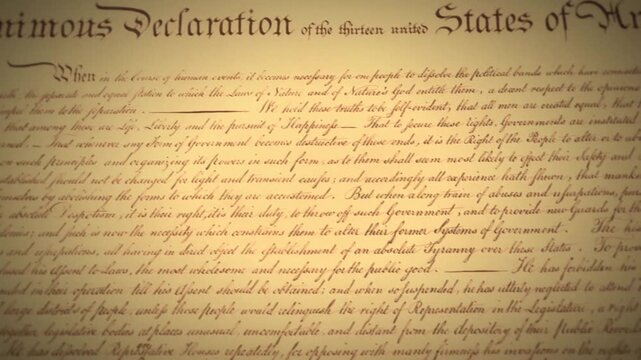 nimous Declaration of the thirteen united States of Am
When in the Course of human events, it becomes necessary for one people to dissolve the political bands which have connected
earth, the separate and equal station to which the Laws of Nature and of Nature's God entitle them, a decent respect to the opinions
impel them to the separation. ——— We hold these truths to be self-evident, that all men are created equal, that
that among these are Life, Liberty and the pursuit of Happiness. — That to secure these rights, Governments are instituted
erned, — That whenever any Form of Government becomes destructive of these ends, it is the Right of the People to alter or to ab
on such principles and organizing its powers in such form, as to them shall seem most likely to effect their Safety and
established should not be changed for light and transient causes; and accordingly all experience hath shewn, that mank
themselves by abolishing the forms to which they are accustomed. But when a long train of abuses and usurpations, pur
absolute Despotism, it is their right, it is their duty, to throw off such Government, and to provide new Guards for the
olonies; and such is now the necessity which constrains them to alter their former Systems of Government. The his
and usurpations, all having in direct object the establishment of an absolute Tyranny over these States. To prove
fused his Assent to Laws, the most wholesome and necessary for the public good. ——— He has forbidden his
ended in their operation till his Assent should be obtained; and when so suspended, he has utterly neglected to attend
large districts of people, unless those people would relinquish the right of Representation in the Legislature, a right
together legislative bodies at places unusual, uncomfortable, and distant from the depository of their public Records
He has dissolved Representative Houses repeatedly, for opposing with manly firmness his invasions on the rights